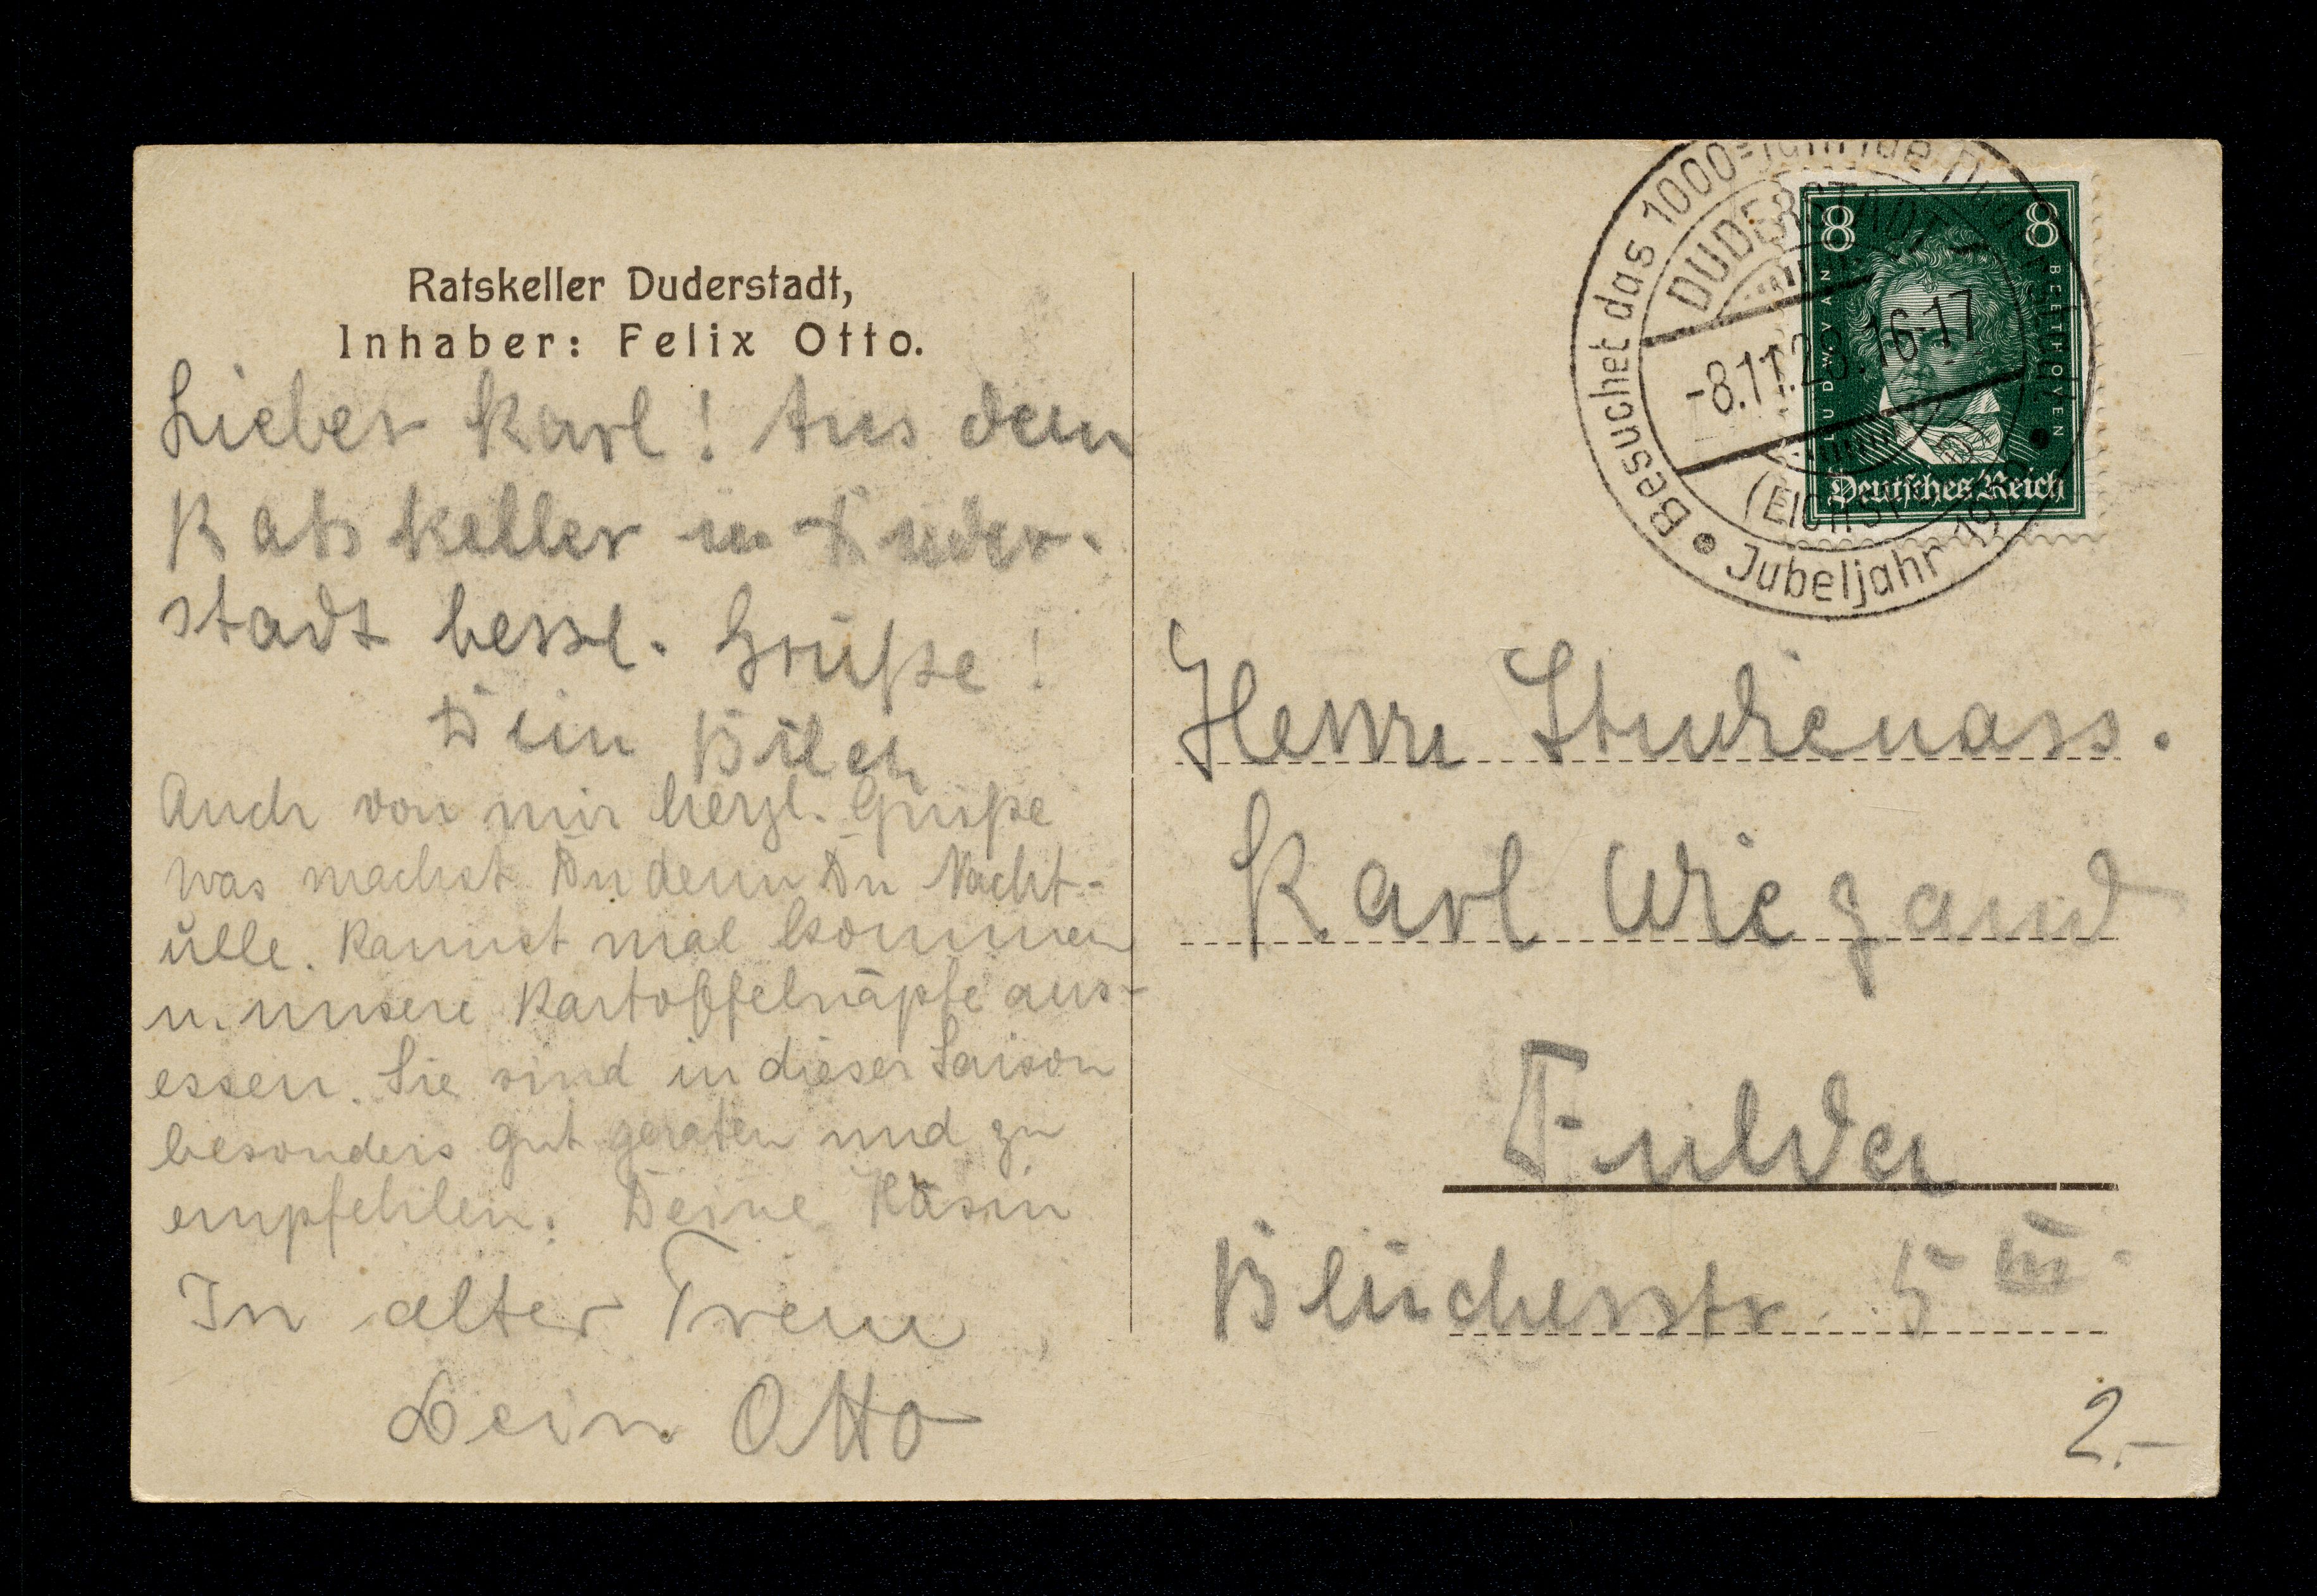 Ratskeller Duderstadt,
Inhaber: Felix Otto.
Lieber Karl! Aus dem
Ratskeller in Duder-
stadt beste. Grüße!
Dein
Auch von mir herzl. Grüße
Was machst Du denn Du Nacht-
ülle. Kannst mal kommen
u. unsere Kartoffelnäpfe aus-
essen. Sie sind in dieser Saison
besonders gut geraten und zu
empfehlen. Deine
In alter Treue
Dein Otto
• Besuchet das 1000=jährige Duderstadt •
Jubeljahr 192
DUDERSTADT
-8.11.28.16-17
(EICHSFELD)
8 8
LUDW. VAN BEETHOVEN
Deutsches Reich
Herrn Studienass.
Karl Wiegand
Fulda
Blücherstr. 5 III.
2.-